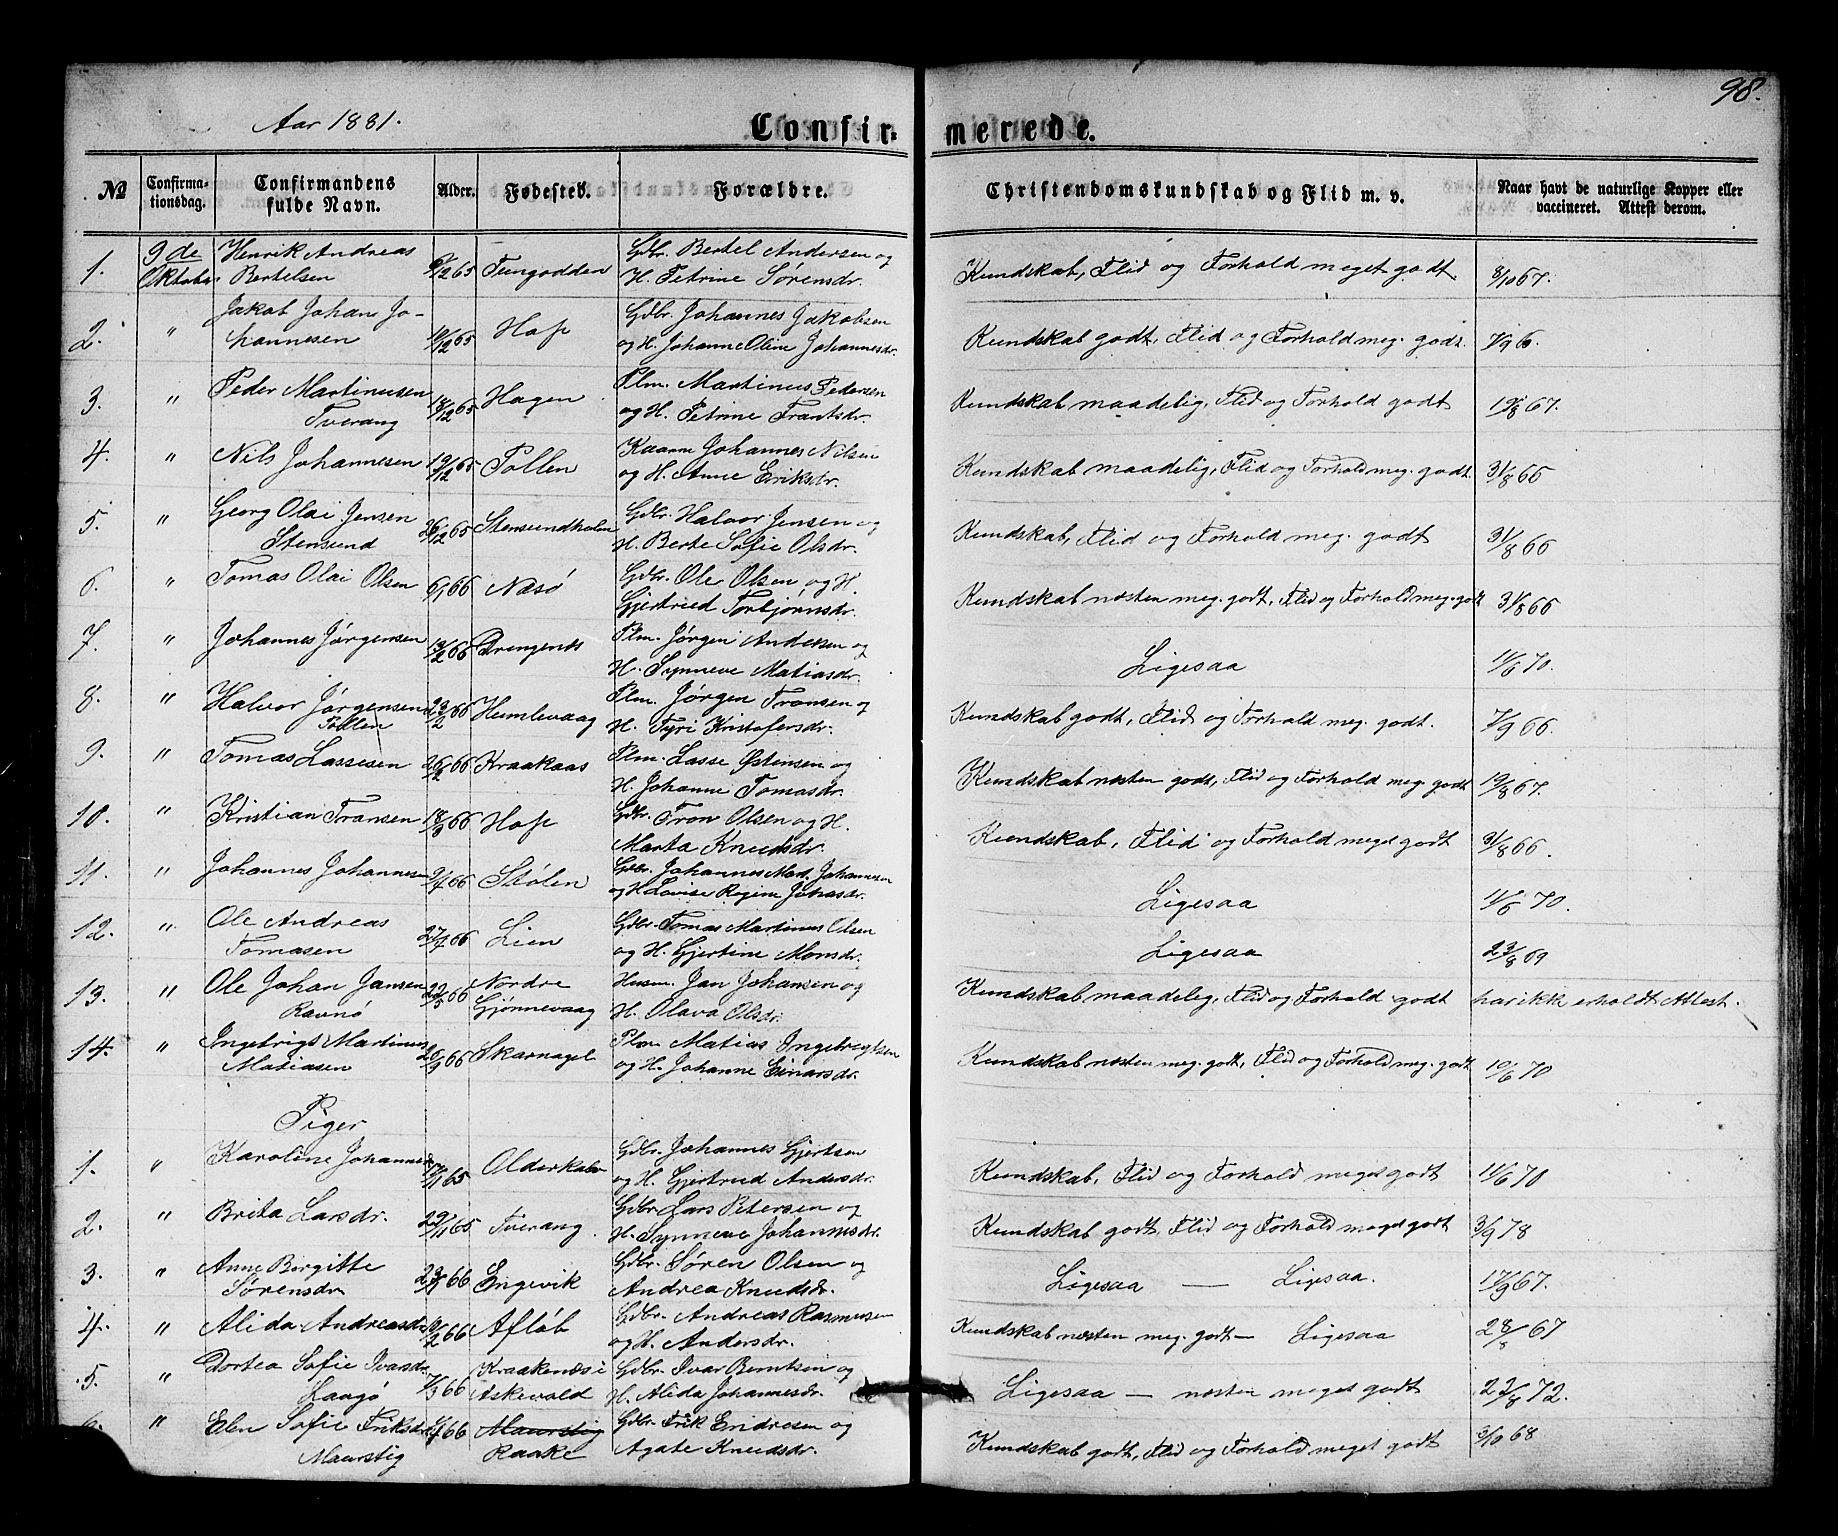 98.
Aar 1881.
Confirmerede.
No
Confirmationsdag.
Confirmandens fulde Navn.
Alder.
Fødested.
Forældre.
Christendomskundskab og Flid m. v.
Naar havt de naturlige Kopper eller vaccineret. Attest derom.
1. 9de Henrik Andreas Gdbr. Bertel Andersen og
Oktober Bertelsen /12 65 Tungodden H. Petrine Sørensdr. Kundskab, Flid og Forhold meget godt. 8/10 67.
2. " Jakob Johan Jo- Gdbr. Johannes Jakobsen
hannesen 10/12 65 Hope og H. Johanne Oline Johannesdr. Kundskab godt, Flid og Forhold meg. godt. 7/9 6.
3. " Peder Martinusen Plm. Martinus Pedersen
Tverang 18/12 65 Hagen og H. Petrine Frantsdr. Kundskab maadelig, Flid og Forhold godt 19/8 67.
4. " Nils Johannesen 19/12 65 Pollen Kaarm. Johannes Nilsen
og H. Anne Eriksdr. Kundskab maadelig, Flid og Forhold meg. godt. 31/8 66
5. " Georg Olai Jensen 26/12 65 Stensundholm Gdbr. Halvor Jensen og
Stensund H. Berte Sofie Olsdr. Kundskab, Flid og Forhold meg. godt 31/8 66
6. " Tomas Olai Olsen 6/1 66 Næsø Gdbr. Ole Olsen og H.
Gjertried Torbjørnsdr. Kundskab næsten meg. godt, Flid og Forhold meg. godt 31/8 66
7. " Johannes Jørgensen 13/2 66 Drengenes Plm. Jørgen Andersen og
H. Synneve Matiasdr. Ligesaa 11/6 70.
8. " Halvor Jørgensen 23/2 66 Humlevaag Plm. Jørgen Transen og
Pollen H. Tyri Kristofersdr. Kundskab godt, Flid og Forhold meg. godt. 7/9 66.
9. " Tomas Lassesen 26/2 66 Kraakaas Plm. Lasse Østensen og
H. Johanne Tomasdr. Kundskab næsten godt, Flid og Forhold meg. godt 19/8 67.
10. " Kristian Transen 18/3 66 Hope Gdbr. Tron Olsen og H.
Marta Knudsdr. Kundskab, Flid og Forhold meget godt 31/8 66.
11. " Johannes Johannesen 9/4 66 Stølen Gdbr. Johannes Mat. Johannesen
og H. Lovise Regine Johasdr. Ligesaa 11/6 70.
12. " Ole Andreas Gdbr. Tomas Martinus Olsen
Tomasen 27/4 66 Lien og H. Gjertine Monsdr. Ligesaa 23/8 69
13. " Ole Johan Jansen 22/5 66 Nordre Husm. Jan Johansen og
Ravnø Gjønnevaag H. Olava Olsdr. Kundskab maadelig, Flid og Forhold godt har ikk erholdt Attest.
14. " Ingebrigt Martinus 20/9 66 Skarnagel Plm Matias Ingebregtsen
Matiasen og H. Johanne Einarsdr. Kundskab næsten meg. godt, Flid og Forhold meg. godt 10/6 70
Piger
1. " Karoline Johannesdr. /11 65 Olderkalv Gdbr. Johannes Gjertsen
og H. Gjertrud Andersdr. Kundskab, Flid og Forhold meget godt 11/6 70
2. " Brita Larsdr. 29/11 65 Tverang Gdbr. Lars Petersen og
H. Synneve Johannesdr. Kundskab godt, Flid og Forhold meget godt 3/9 78
3. " Anne Bergitte Gdbr. Søren Olsen og
Sørensdr 23/1 66 Engevik Andrea Knudsdr. Ligesaa — Ligesaa. 17/9 67.
4. " Alida Andreasdr 9/2 66 Afløb Gdbr. Andreas Rasmussen
og H. Andersdr. Kundskab næsten meg. godt — Ligesaa 28/8 67
5. " Dortea Sofie Ivarsdr. 7/3 66 Kraakenæs i Gdbr. Ivar Berntsen og
Laagø Askevold H. Alida Johannesdr. Ligesaa — næsten meget godt 22/8 72.
6. " Elen Sofie Eriksdr. /4 66 Maurstig Gdbr. Erik Endresen og
Maurstig Raake Agate Knudsdr. Kundskab godt, Flid og Forhold meget godt /10 68